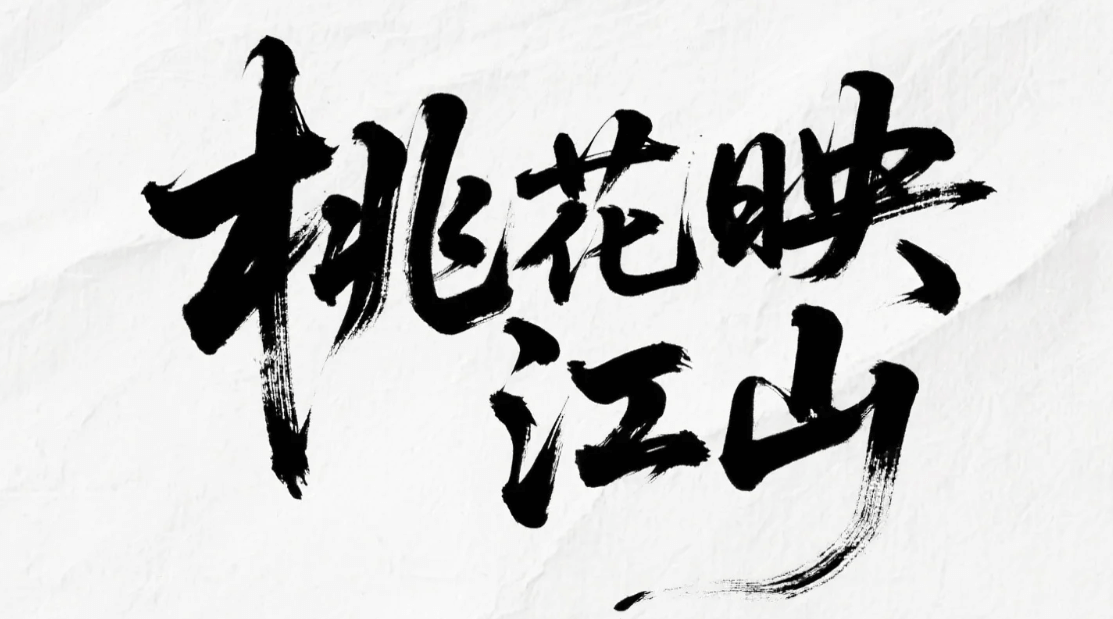 桃花映
江山